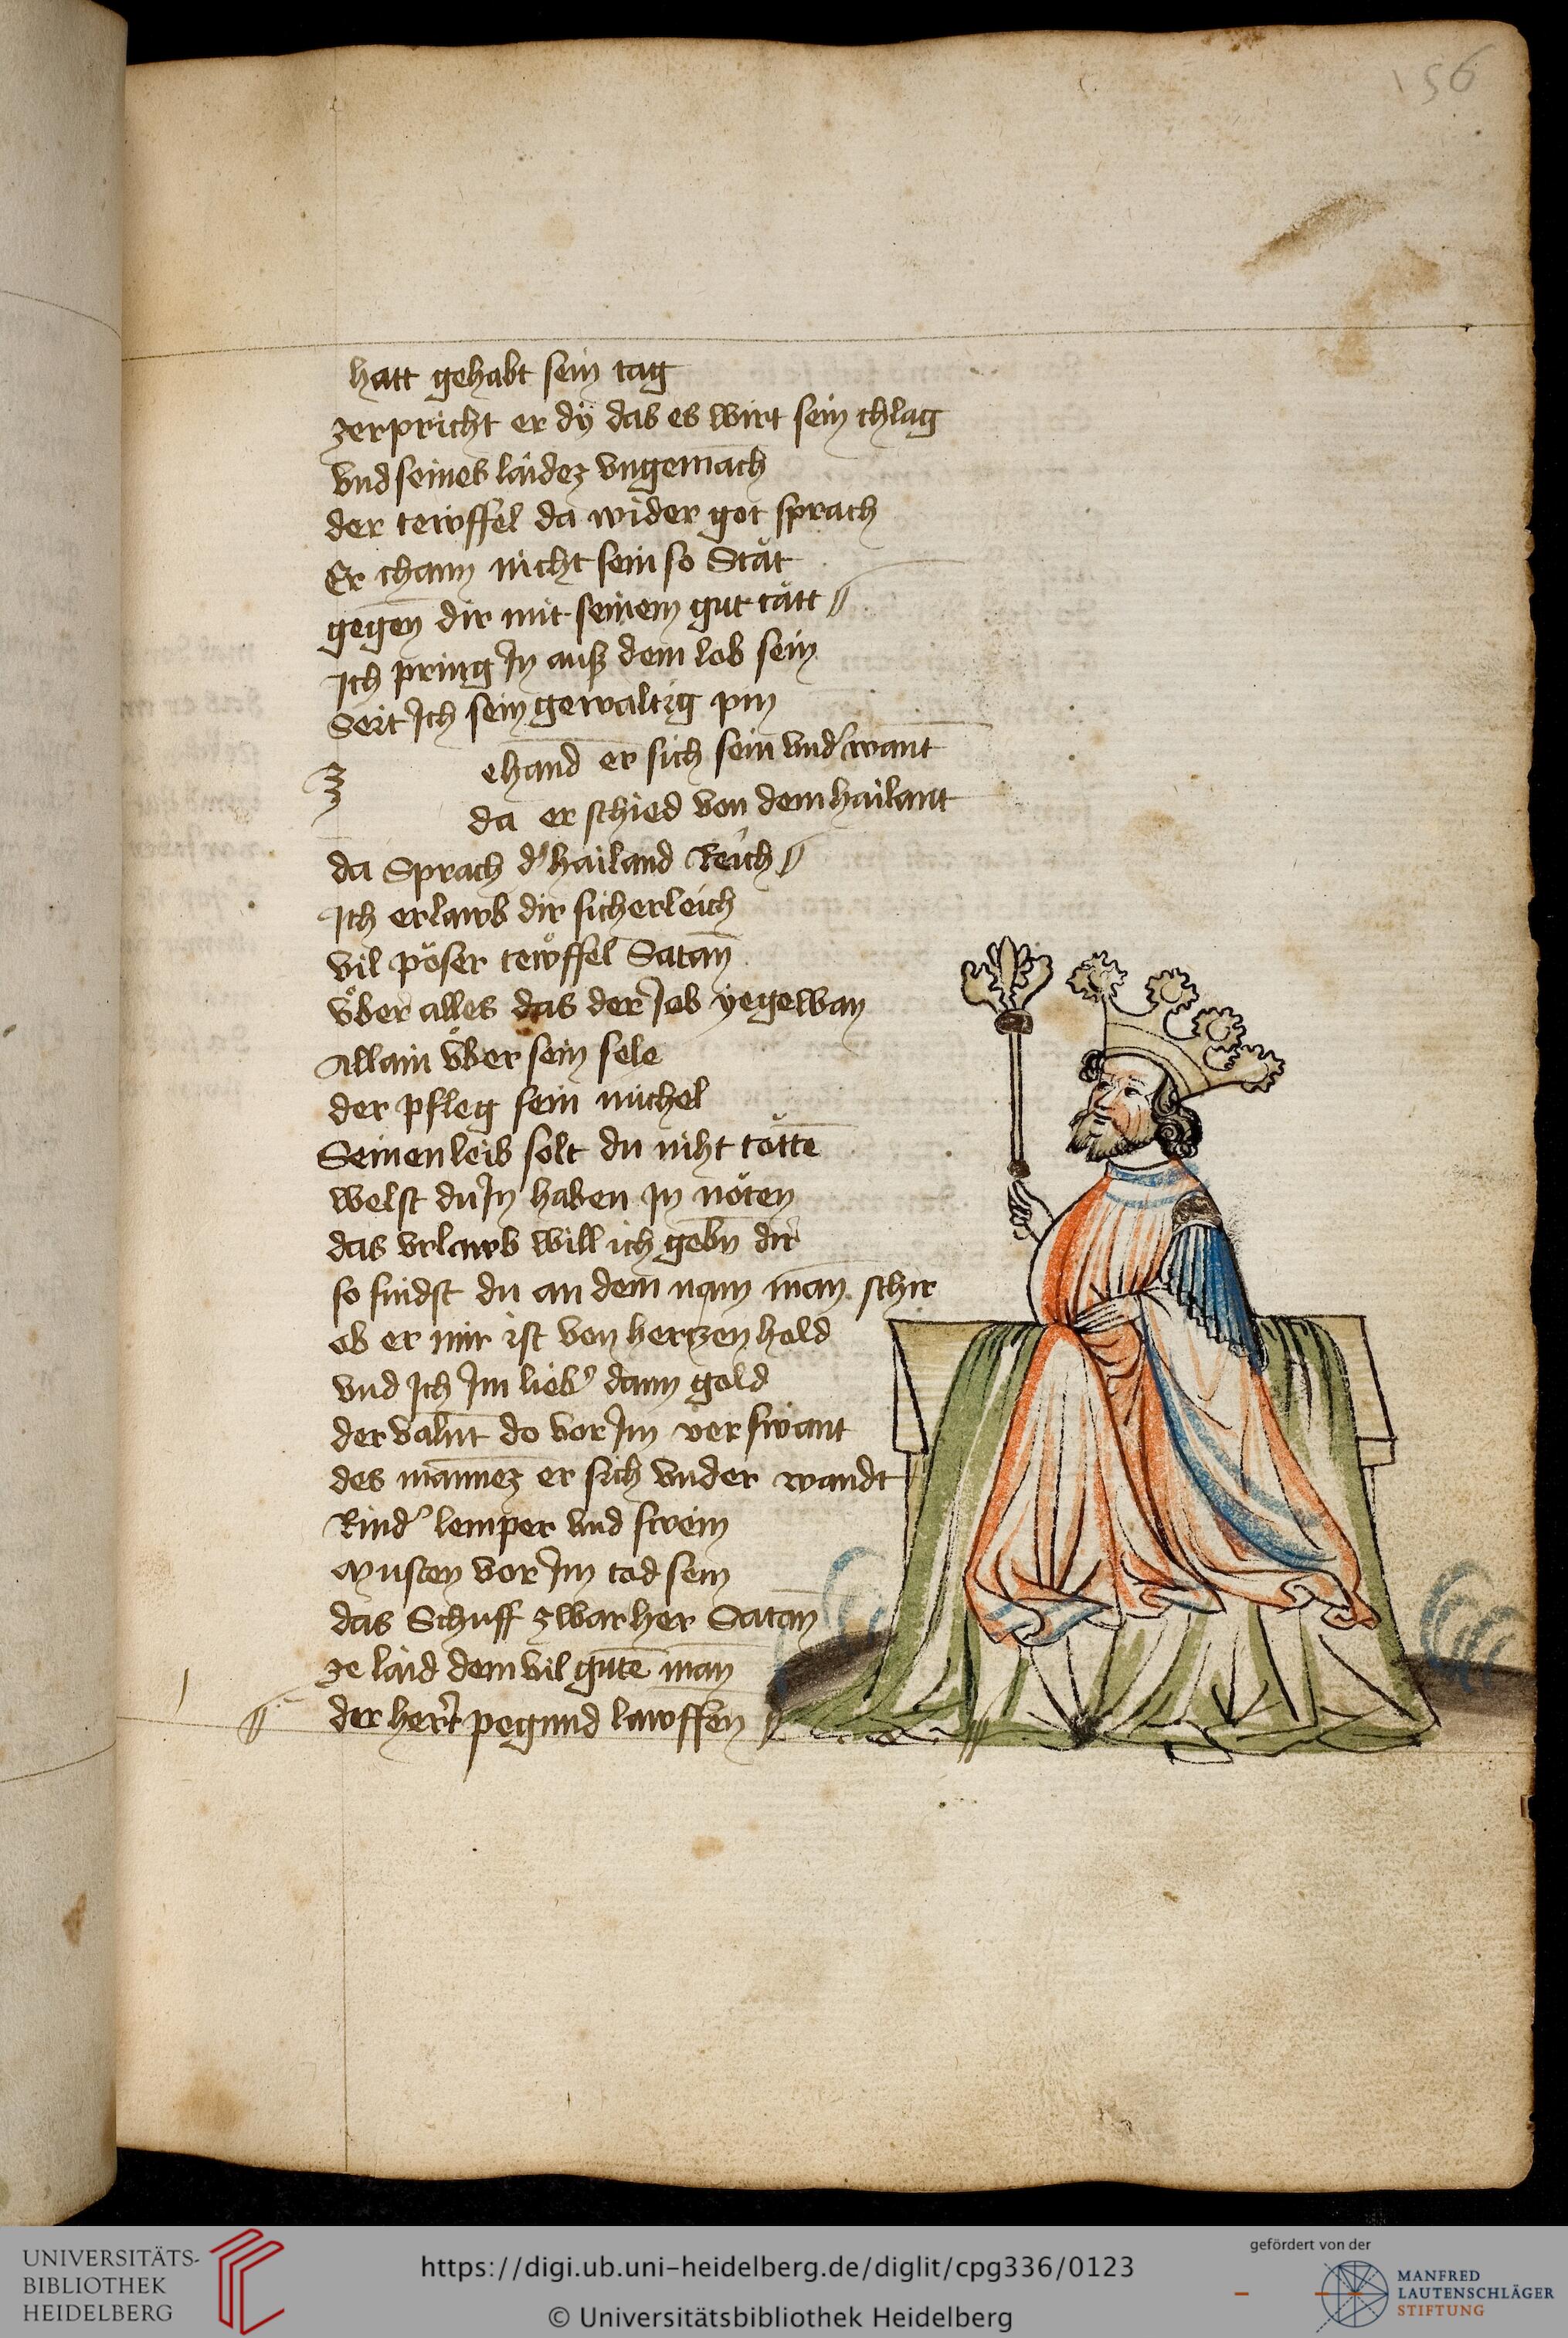 156
hatt gehabt sein tag
zerpricht er dÿ das es wirt sein chlag
vnd seines laidez vngemach
der tewffel da wider got sprach
Er chann nicht sein so Stät
gegen dir mit seinem gut tätt
Ich pring In auß dem lob sein
Seit Ich sein gewaltig pin
z ehand er sich sein vnd' want
da er schied von dem hailant
da Sprach d' hailand Reich
Ich erlawb dir sicherleich
vil pöser tewffel Satan
vber alles das der Job ye gewan
Allain vber sein sele
der pfleg sein michel
Seinen leib solt du niht tötte
welst du In haben in nöten
das vrlawb will ich gebn dir
so findst du an dem man schir
ob er mir ist von hertzen hold
vnd Ich Im lieb' dann gold
der valnt do vor Im verswant
des mannez er sich vnder wandt
Rind' lemper vnd swein
Musten vor Im tod sein
das Schuff zwar her Satan
ze laid dem vil gute man
der hert pegund lawffen
UNIVERSITÄTS-
BIBLIOTHEK
HEIDELBERG
https://digi.ub.uni-heidelberg.de/diglit/cpg336/0123
© Universitätsbibliothek Heidelberg
gefördert von der
MANFRED
LAUTENSCHLÄGER
STIFTUNG